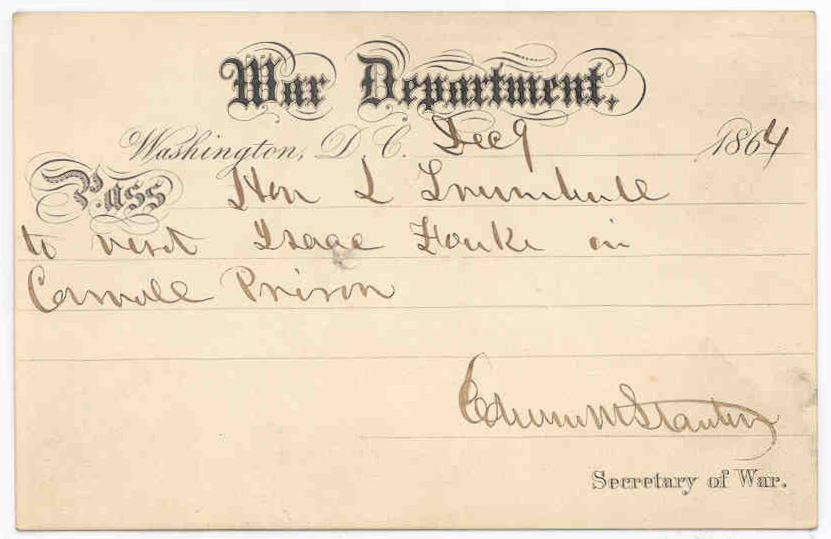 War Department,
Washington, D C. Dec 9 1864
Pass Hon L Trumbull
to visit Isaac Fouke in
Carroll Prison
Edwin M Stanton
Secretary of War.